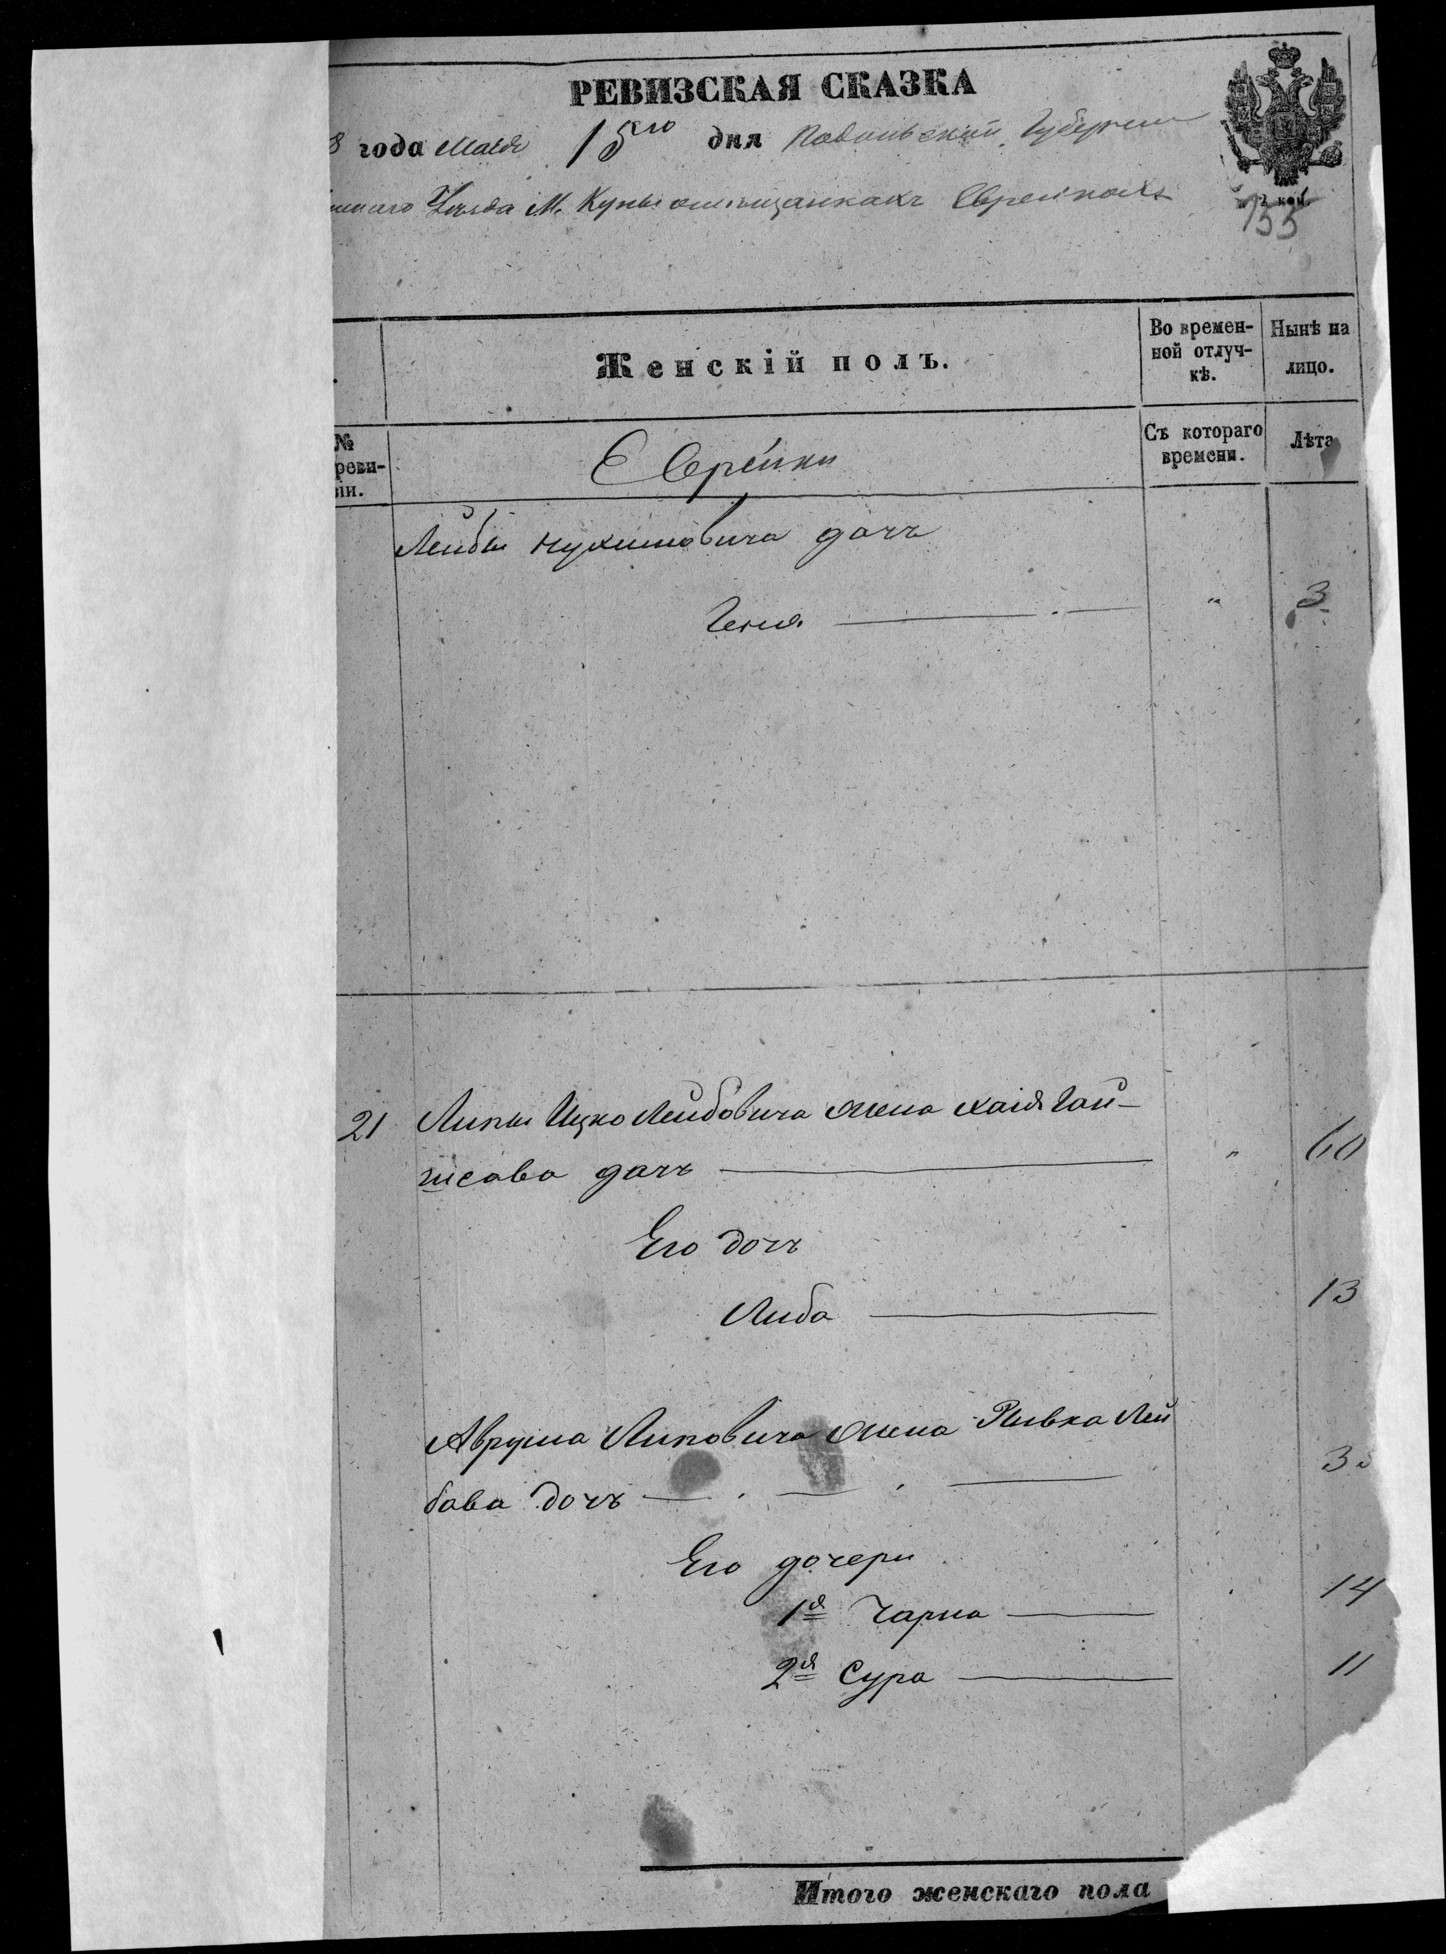 РЕВИЗСКАЯ СКАЗКА
8 года Маія 15го дня Подольской Губерніи
Уѣзда М. Купы о мѣщанкахъ Еврейкахъ
2 коп.
155
Женскій полъ.
Во времен-
ной отлуч-
кѣ.
Нынѣ на
лицо.
№
реви-
зіи.
Еврейки
Съ котораго
времени.
Лѣта
Лейбы Нухимовича дочь
Геня " 3
21 Липы Ицко Лейбовича жена Хаія Гай-
шсова дочь " 60
Его дочь
Либа 13
Аврума Липовича жена Рывка Лей
бова дочь
Его дочери
1я Чарна 14
2я Сура 11
Итого женскаго пола